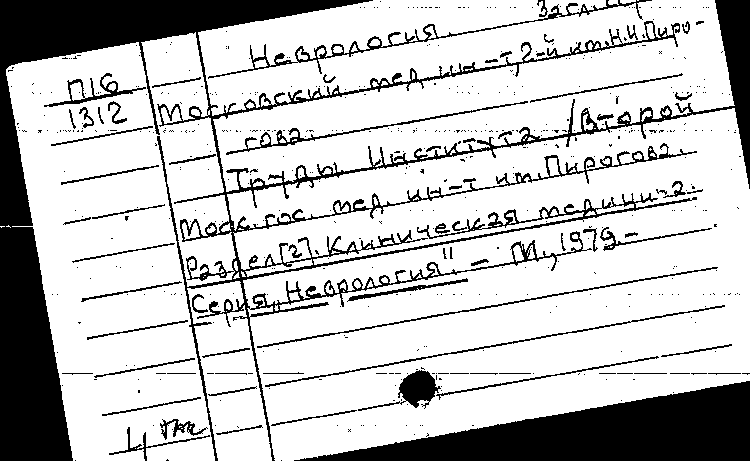 Неврология. Загл.
П16
1312
Московский мед. ин-т, 2-й им. Н.И. Пиро-
гова.
Труды Института /Второй
Моск. гос. мед. ин-т им. Пирогова.
Раздел [2]. Клиническая медицина.
Серия „Неврология". – М., 1979.–
4